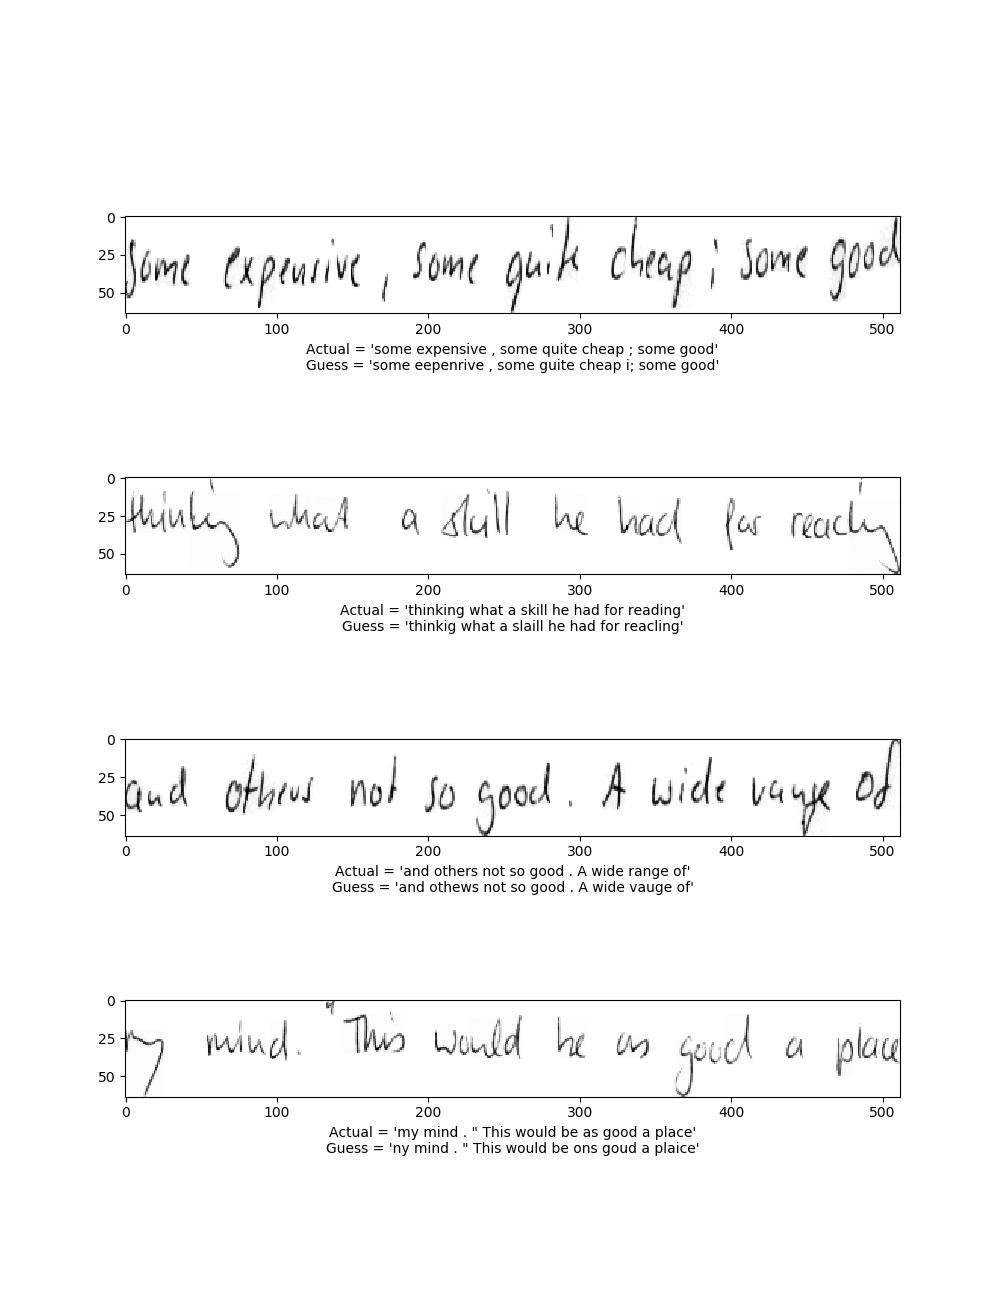 0
25
50
some expensive , some quite cheap ; some good
0 100 200 300 400 500
Actual = 'some expensive , some quite cheap ; some good'
Guess = 'some eepenrive , some guite cheap i; some good'
0
25
50
thinking what a skill he had for reading
0 100 200 300 400 500
Actual = 'thinking what a skill he had for reading'
Guess = 'thinkig what a slaill he had for reacling'
0
25
50
and others not so good . A wide range of
0 100 200 300 400 500
Actual = 'and others not so good . A wide range of'
Guess = 'and othews not so good . A wide vauge of'
0
25
50
my mind . " This would be as good a place
0 100 200 300 400 500
Actual = 'my mind . " This would be as good a place'
Guess = 'ny mind . " This would be ons goud a plaice'